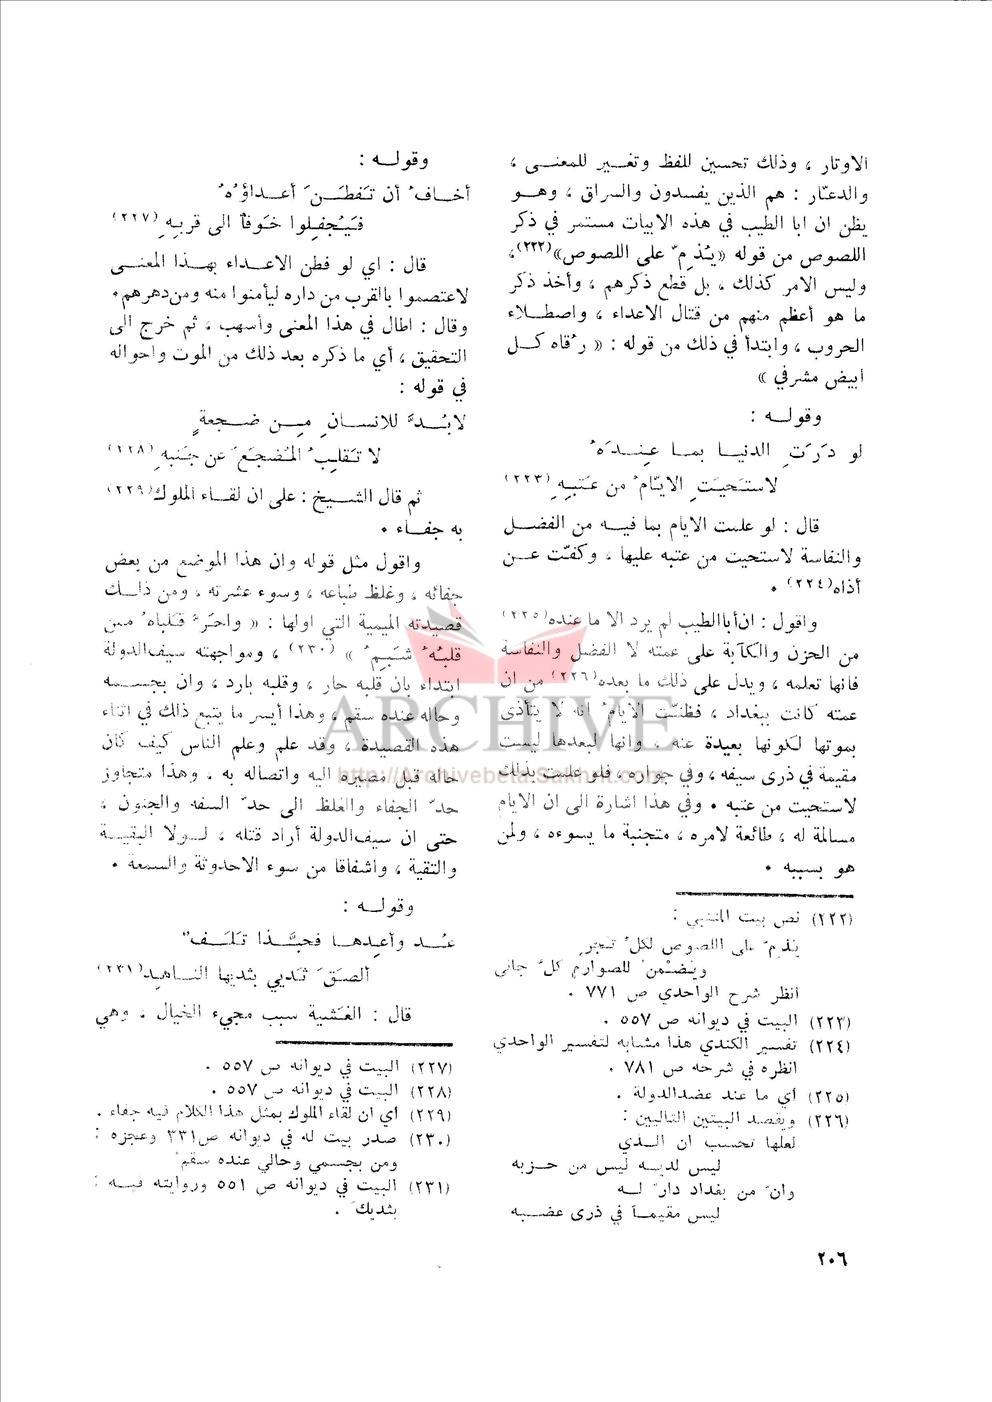 الاوتار ، وذلك تحسين للفظ وتغيير للمعنى ،
والدعّار : هم الذين يفسدون والسراق ، وهو
يظن ان ابا الطيب في هذه الابيات مستمر في ذكر
اللصوص من قوله «يُذِمّ على اللصوص»(٢٢٢)،
وليس الامر كذلك ، بل قطع ذكرهم ، وأخذ ذكر
ما هو أعظم منهم من قتال الاعداء ، واصطلاء
الحروب ، وابتدأ في ذلك من قوله : « رُقاه كل
ابيض مشرفي »
وقوله :
لو دَرَتِ الدنيا بما عِندَهُ
لاستَحيَتِ الايّامُ من عَتبِهِ(٢٢٣)
قال : لو علمت الايام بما فيه من الفضل
والنفاسة لاستحيت من عتبه عليها ، وكفّت عن
أذاه(٢٢٤) .
واقول : ان أبا الطيب لم يرد الا ما عنده(٢٢٥)
من الحزن والكآبة على عمته لا الفضل والنفاسة
فانها تعلمه ، ويدل على ذلك ما بعده(٢٢٦) من ان
عمته كانت ببغداد ، فظنّت الايامُ انه لا يتأذى
بموتها لكونها بعيدة عنه ، وانها لبعدها ليست
مقيمة في ذرى سيفه ، وفي جواره ، فلو علمت بذلك
لاستحيت من عتبه . وفي هذا اشارة الى ان الايام
مسالمة له ، طائعة لامره ، متجنبة ما يسوءه ، ولمن
هو بسببه .
(٢٢٢) نص بيت المتنبي :
يُذِمّ على اللصوص لكلّ تَجرٍ
ويَضْمنُ للصوارم كلّ جاني
انظر شرح الواحدي ص ٧٧١ .
(٢٢٣) البيت في ديوانه ص ٥٥٧ .
(٢٢٤) تفسير الكندي هذا مشابه لتفسير الواحدي
انظره في شرحه ص ٧٨١ .
(٢٢٥) أي ما عند عضدالدولة .
(٢٢٦) ويقصد البيتين التاليين :
لعلها تحسب ان الذي
ليس لديه ليس من حزبه
وانّ من بغداد دارٌ له
ليس مقيماً في ذرى عضبه
وقوله :
أخافُ أن تَفطَنَ أعداؤهُ
فيُجفِلوا خَوفاً الى قربِهِ(٢٢٧)
قال : اي لو فطن الاعداء بهذا المعنى
لاعتصموا بالقرب من داره ليأمنوا منه ومن دهرهم .
وقال : اطال في هذا المعنى وأسهب ، ثم خرج الى
التحقيق ، أي ما ذكره بعد ذلك من الموت واحواله
في قوله :
لابُدَّ للانسانِ مِن ضَجعةٍ
لا تَقلِبُ المُضجَعَ عن جَنبِهِ(٢٢٨)
ثم قال الشيخ : على ان لقاء الملوك(٢٢٩)
به جفاء .
واقول مثل قوله وان هذا الموضع من بعض
جفائه ، وغلظ طباعه ، وسوء عشرته ، ومن ذلك
قصيدته الميمية التي اولها : « واحَرَّ قَلباهُ ممن
قلبُهُ شَبِمُ » (٢٣٠) ، ومواجهته سيف الدولة
ابتداء بان قلبه حار ، وقلبه بارد ، وان بجسمه
وحاله عنده سقم ، وهذا أيسر ما يتبع ذلك في اثناء
هذه القصيدة ، وقد علم وعلم الناس كيف كان
حاله قبل مصيره اليه واتصاله به . وهذا متجاوز
حدّ الجفاء والغلظ الى حدّ السفه والجنون ،
حتى ان سيف الدولة أراد قتله ، لولا البقية
والتقية ، واشفاقا من سوء الاحدوثة والسمعة .
وقوله :
عُد وأعِدها فحبَّذا تَلَفٌ
ألصَقَ ثَديي بثديها الناهِد(٢٣١)
قال : الغَشية سبب مجيء الخيال ، وهي
(٢٢٧) البيت في ديوانه ص ٥٥٧ .
(٢٢٨) البيت في ديوانه ص ٥٥٧ .
(٢٢٩) أي ان لقاء الملوك بمثل هذا الكلام فيه جفاء .
(٢٣٠) صدر بيت له في ديوانه ص٣٣١ وعجزه :
ومن بجسمي وحالي عنده سقمُ
(٢٣١) البيت في ديوانه ص ٥٥١ وروايته فيه :
بثديكَ .
٢٠٦
ARCHIVE
http://Archivebeta.Sakhrit.com